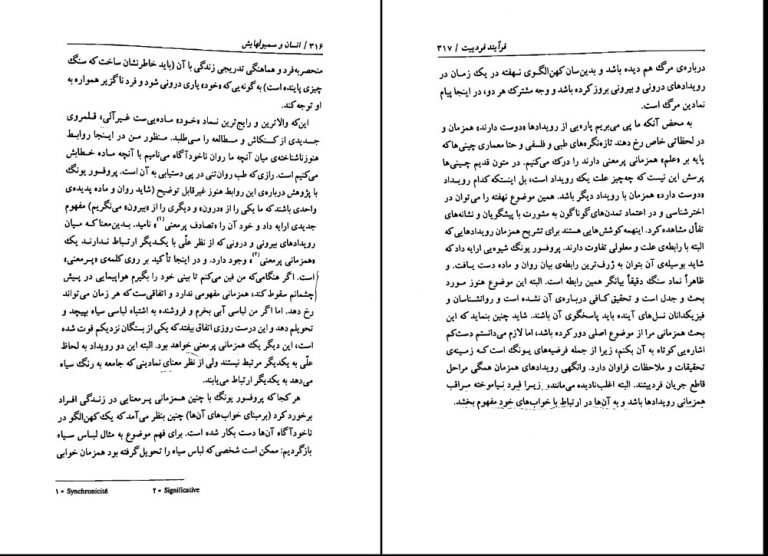 ۳۱۶/ انسان و سمبولهایش
منحصربه‌فرد و هماهنگی تدریجی زندگی با آن (باید خاطرنشان ساخت که سنگ
چیزی پاینده است) به‌گونه‌یی که «خود» یاری درونی شود و فرد ناگزیر همواره به
او توجه کند.
این‌که والاترین و رایج‌ترین نماد «خود» ماده‌یی‌ست غیرآلی، قلمروی
جدیدی از کنکاش و مطالعه را می‌طلبد. منظور من در اینجا روابط
هنوز ناشناخته‌ی میان آنچه ما روان ناخودآگاه می‌نامیم با آنچه ماده خطابش
می‌کنیم است. رازی که طب روان‌تنی در پی دستیابی به آن است. پروفسور یونگ
با پژوهش درباره‌ی این روابط هنوز غیرقابل توضیح (شاید روان و ماده پدیده‌ی
واحدی باشند که ما یکی را از «درون» و دیگری را از «بیرون» می‌نگریم) مفهوم
جدیدی ارایه داد و خود آن را «تصادف پرمعنی(۱)» نامید. بدین‌معنا که میان
رویدادهای بیرونی و درونی که از نظر علّی با یکدیگر ارتباط ندارند یک
«همزمانی پرمعنی(۲)» وجود دارد. و در اینجا تأکید بر روی کلمه‌ی «پرمعنی»
است. اگر هنگامی‌که من فین می‌کنم تا بینی خود را بگیرم هواپیمایی در پیش
چشمانم سقوط کند، همزمانی مفهومی ندارد و اتفاقی‌ست که هر زمان می‌تواند
رخ دهد. اما اگر من لباسی آبی بخرم و فروشنده به اشتباه لباس سیاه بپیچد و
تحویلم دهد و این درست روزی اتفاق بیفتد که یکی از بستگان نزدیکم فوت شده
است، این دیگر یک همزمانی پرمعنی خواهد بود. البته این دو رویداد به لحاظ
علّی به یکدیگر مرتبط نیستند ولی از نظر معنای نمادینی که جامعه به رنگ سیاه
می‌دهد به یکدیگر ارتباط می‌یابند.
هر کجا که پروفسور یونگ با چنین همزمانی پرمعنایی در زندگی افراد
برخورد کرد (برمبنای خواب‌های آن‌ها) چنین بنظر می‌آمد که یک کهن‌الگو در
ناخودآگاه آن‌ها دست بکار شده است. برای فهم موضوع به مثال لباس سیاه
بازگردیم: ممکن است شخصی که لباس سیاه را تحویل گرفته بود همزمان خوابی
۱ • Synchronicité ۲ • Significative
فرآیند فردییت / ۳۱۷
درباره‌ی مرگ هم دیده باشد و بدین‌سان کهن‌الگوی نهفته در یک زمان در
رویدادهای درونی و بیرونی بروز کرده باشد و وجه مشترک هر دو، در اینجا پیام
نمادین مرگ است.
به محض آنکه ما پی می‌بریم پاره‌یی از رویدادها «دوست دارند» همزمان و
در لحظاتی خاص رخ دهند تازه نگره‌های طبی و فلسفی و حتا معماری چینی‌ها که
پایه بر «علم» همزمانی پرمعنی دارند را درک می‌کنیم. در متون قدیم چینی‌ها
پرسش این نیست که چه‌چیز علت یک رویداد است، بل اینستکه کدام رویداد
«دوست دارد» همزمان با رویداد دیگر باشد. همین موضوع نهفته را می‌توان در
اخترشناسی و در اعتماد تمدن‌های گوناگون به مشورت با پیشگویان و نشانه‌های
تفأل مشاهده کرد. اینهمه کوشش‌هایی هستند برای تشریح همزمان رویدادهایی که
البته با رابطه‌ی علت و معلولی تفاوت دارند. پروفسور یونگ شیوه‌یی ارایه داد که
شاید بوسیله‌ی آن بتوان به ژرف‌ترین رابطه‌ی بیان روان و ماده دست یافت. و
ظاهراً نماد سنگ دقیقاً بیانگر همین رابطه است. البته این موضوع هنوز مورد
بحث و جدل است و تحقیق کافی درباره‌ی آن نشده است و روانشناسان و
فیزیکدانان نسل‌های آینده باید پاسخگوی آن باشند. شاید چنین بنماید که این
بحث همزمانی مرا از موضوع اصلی دور کرده باشد، اما لازم می‌دانستم دست‌کم
اشاره‌یی کوتاه به آن بکنم، زیرا از جمله فرضیه‌های یونگ است که زمینه‌ی
تحقیقات و ملاحظات فراوان دارد. وانگهی رویدادهای همزمان همگی مراحل
قاطع جریان فردییتند. البته اغلب نادیده می‌مانند، زیرا فرد نیاموخته مراقب
همزمانی رویدادها باشد و به آن‌ها در ارتباط با خواب‌های خود مفهوم بخشد.